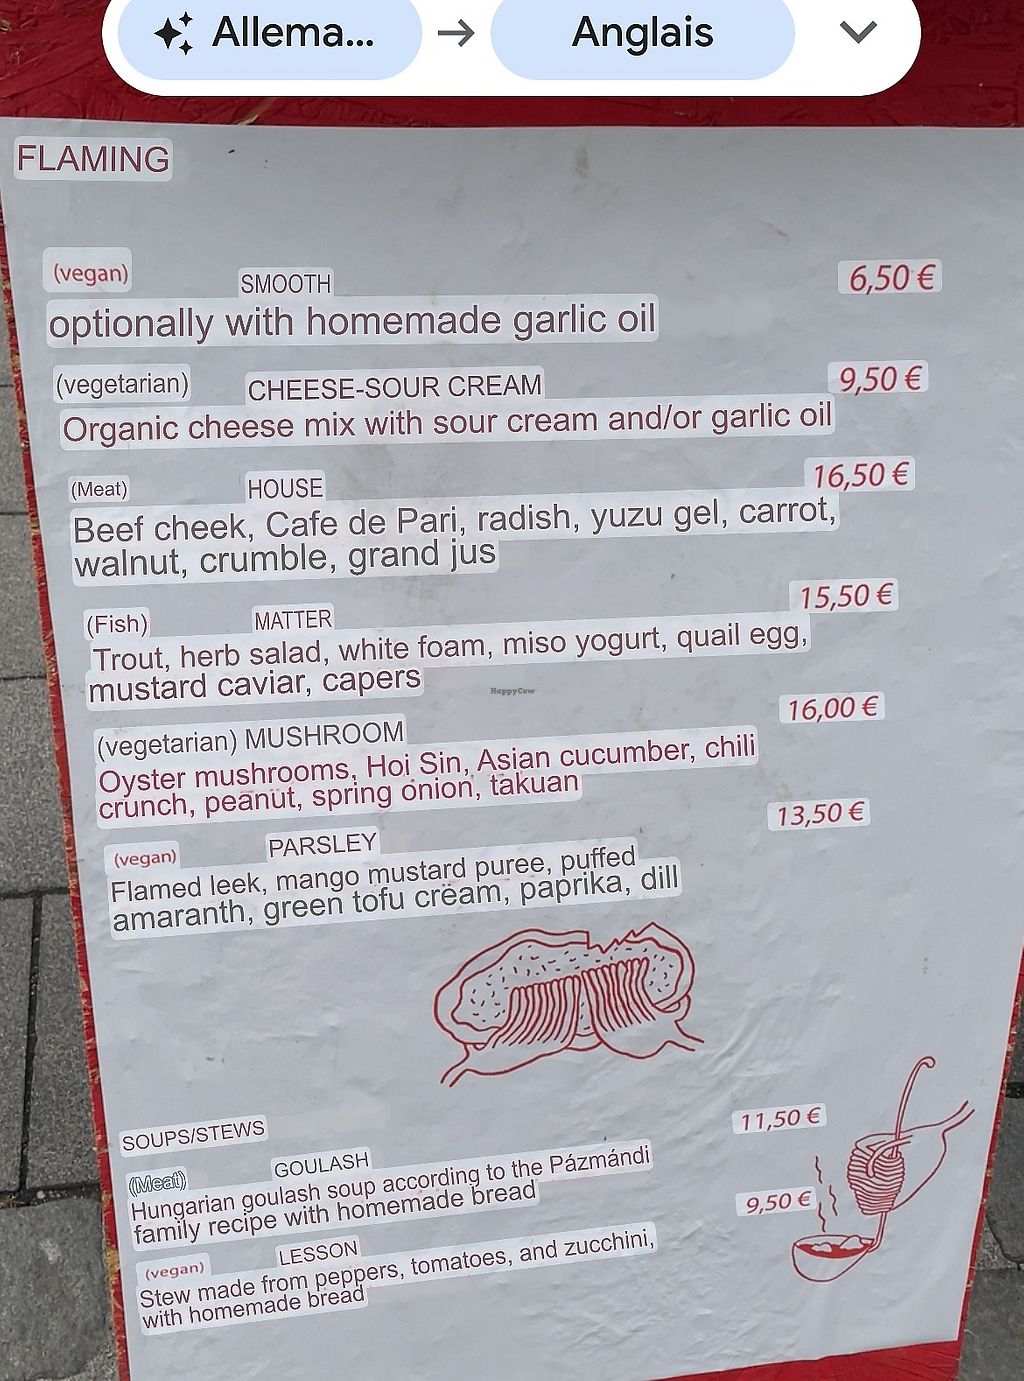 Allema... → Anglais
FLAMING
(vegan) SMOOTH 6,50 €
optionally with homemade garlic oil
(vegetarian) CHEESE-SOUR CREAM 9,50 €
Organic cheese mix with sour cream and/or garlic oil
(Meat) HOUSE 16,50 €
Beef cheek, Cafe de Pari, radish, yuzu gel, carrot,
walnut, crumble, grand jus
(Fish) MATTER 15,50 €
Trout, herb salad, white foam, miso yogurt, quail egg,
mustard caviar, capers
HappyCow
(vegetarian) MUSHROOM 16,00 €
Oyster mushrooms, Hoi Sin, Asian cucumber, chili
crunch, peanut, spring onion, takuan
(vegan) PARSLEY 13,50 €
Flamed leek, mango mustard puree, puffed
amaranth, green tofu cream, paprika, dill
SOUPS/STEWS
(Meat) GOULASH 11,50 €
Hungarian goulash soup according to the Pázmándi
family recipe with homemade bread
(vegan) LESSON 9,50 €
Stew made from peppers, tomatoes, and zucchini,
with homemade bread